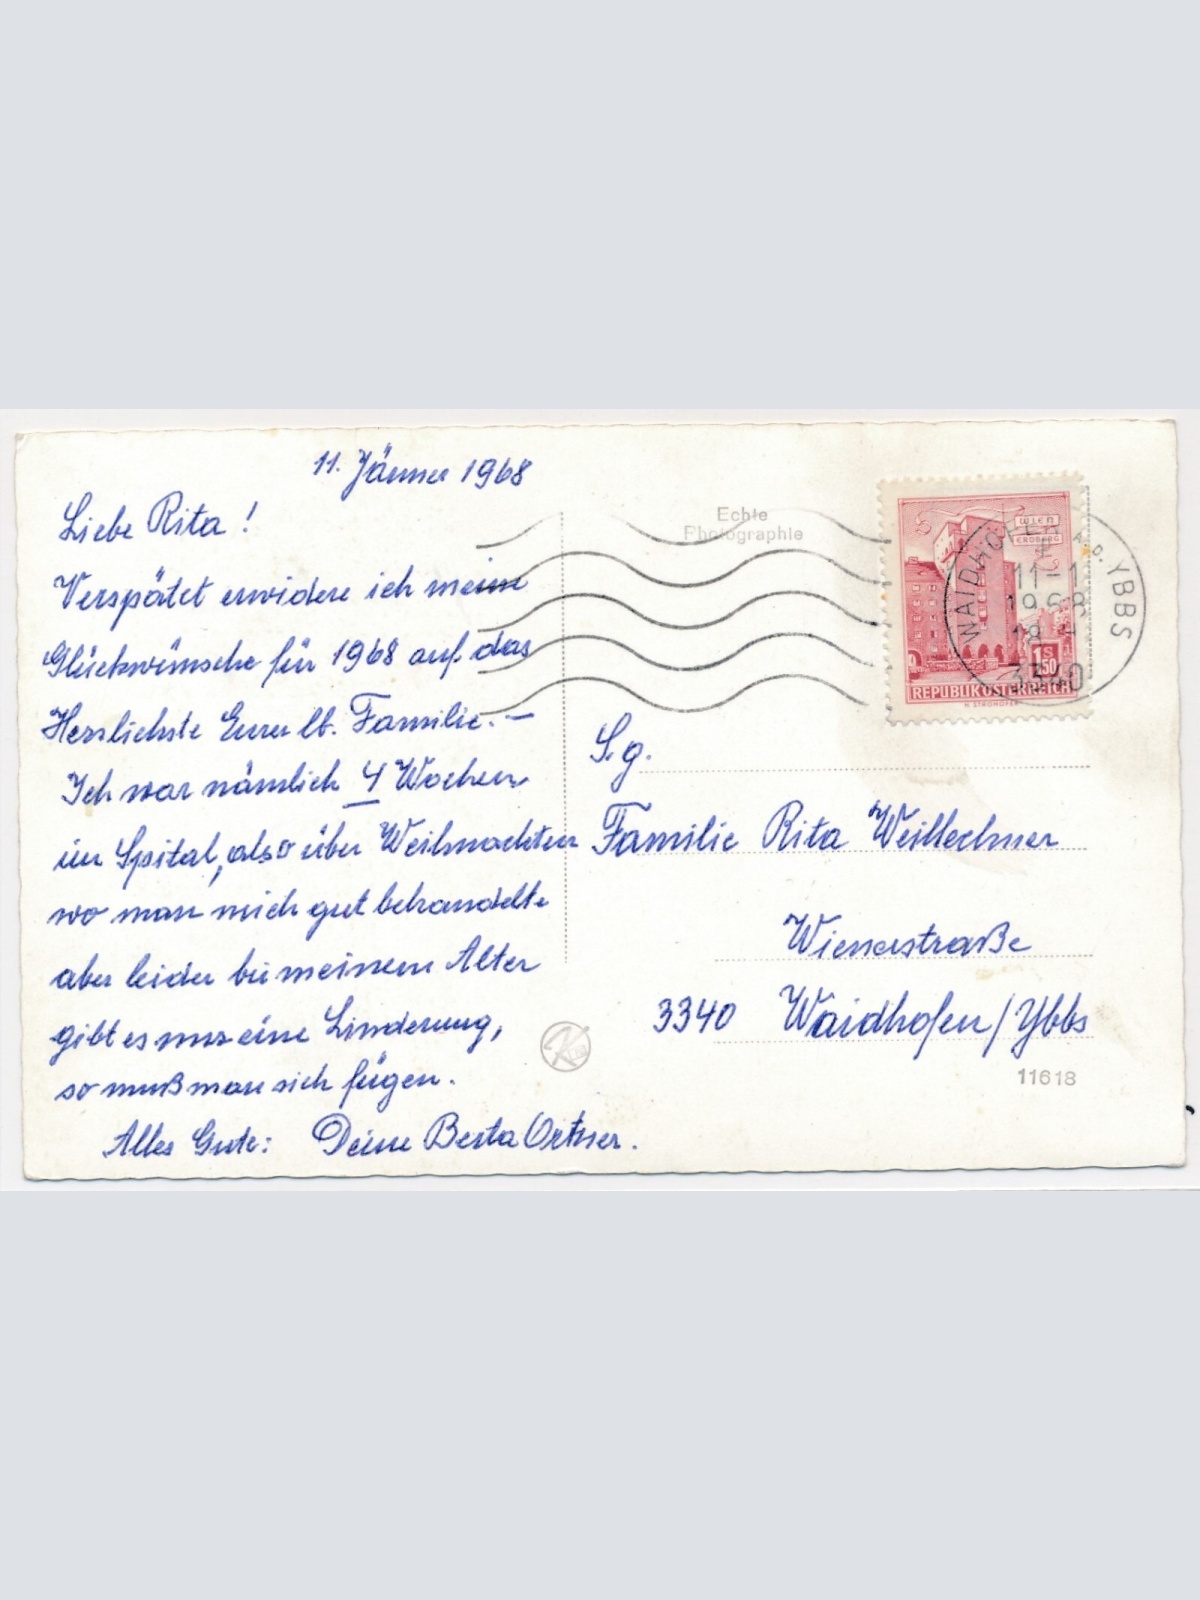 11. Jänner 1968
Liebe Rita !
Verspätet erwidere ich meine
Glückwünsche für 1968 auf das
Herzlichste Eurer lb. Familie. —
Ich war nämlich 4 Wochen
im Spital, also über Weihnachten
wo man mich gut behandelte
aber leider bei meinem Alter
gibt es nur eine Linderung,
so muß man sich fügen.
Alles Gute: Deine Berta Ortner.
Echte
Photographie
WIEN
ERDBERG
1 S 50
REPUBLIK ÖSTERREICH
H. STROHOFER
WAIDHOFEN A. D. YBBS
11-1
1968
18
3340
S. g.
Familie Rita Weillechner
Wienerstraße
3340 Waidhofen/Ybbs
11618